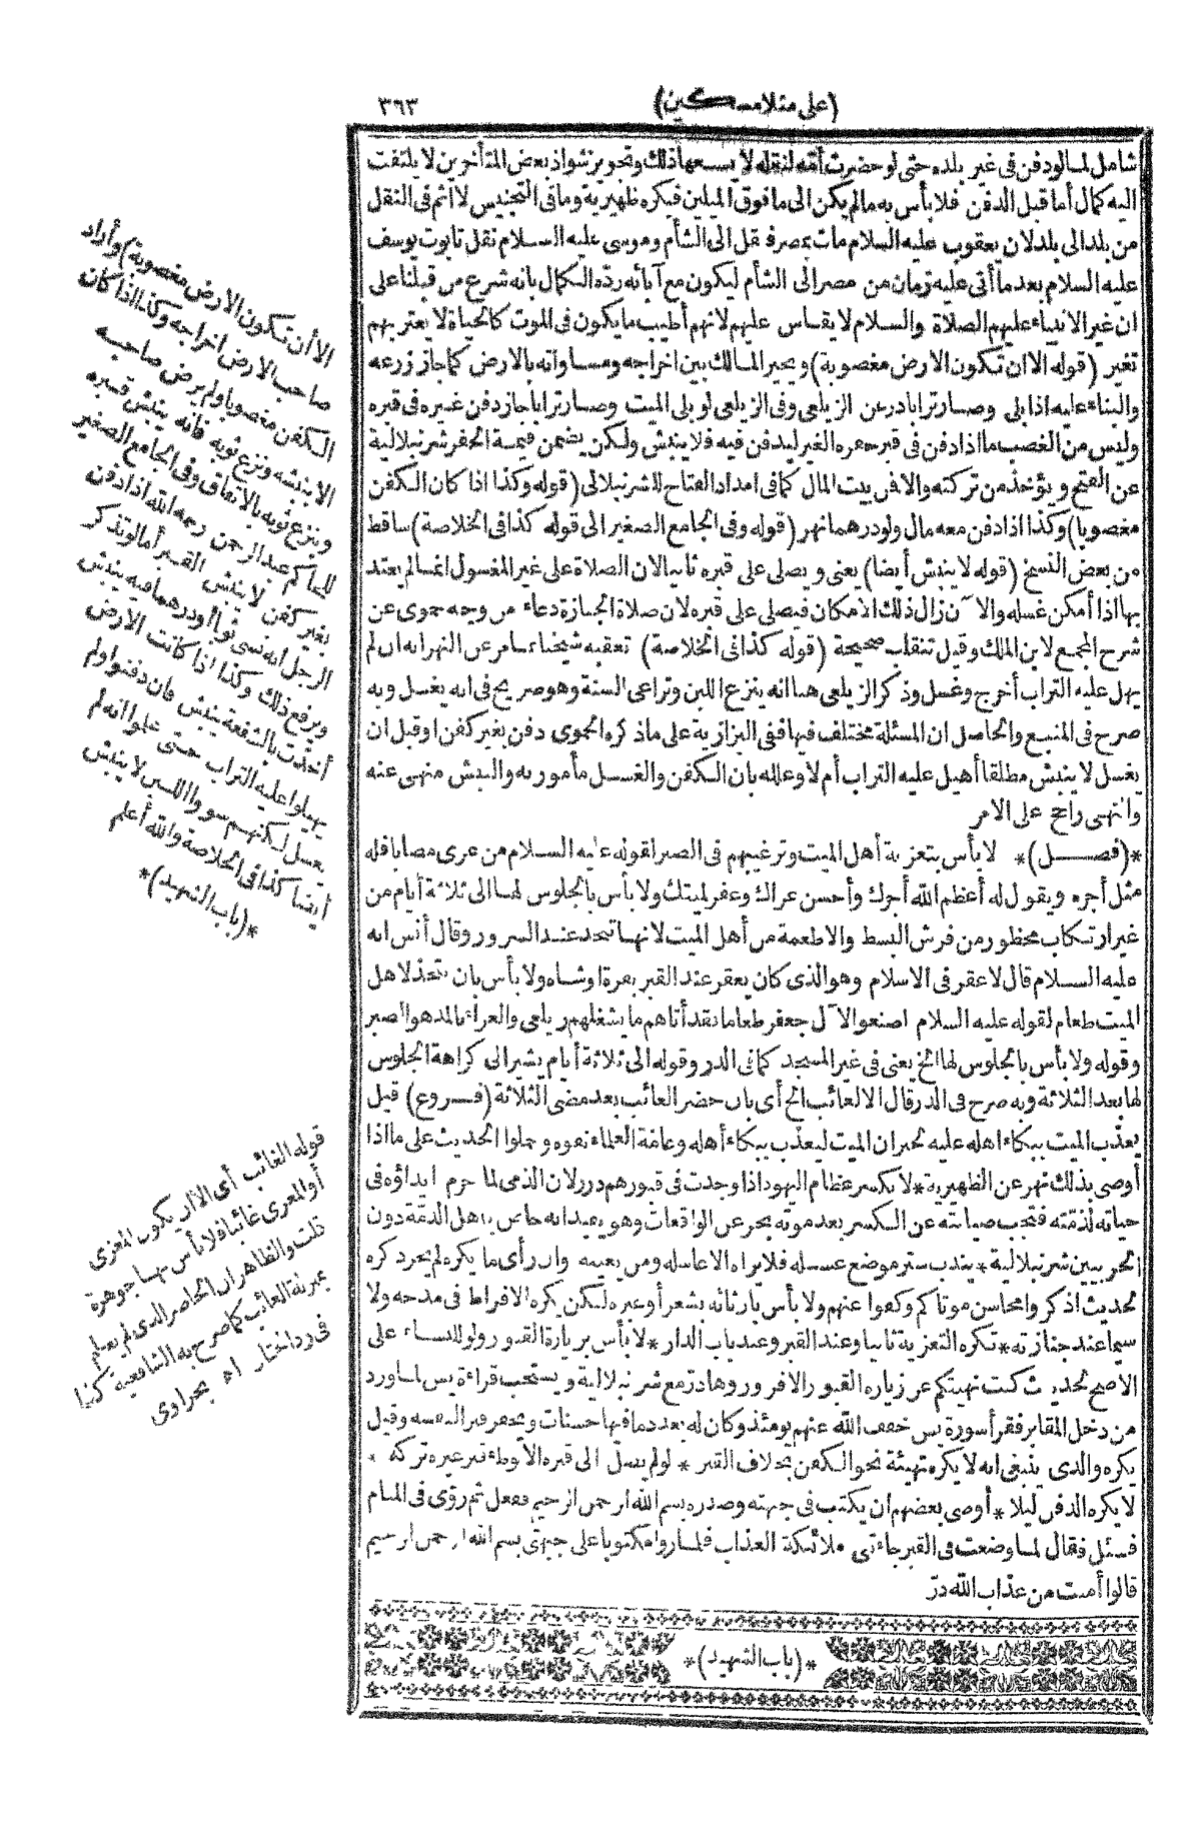 (على منلا مسكين) ٣٦٣
شامل لما لو دفن فى غير بلده حتى لو حضرت أمه لنقله لا يسعها ذلك وتجويز شواذ بعض المتأخرين لا يلتفت
اليه كمال أما قبل الدفن فلا بأس به ما لم يكن الى ما فوق الميلين فيكره ظهيرية وما فى التجنيس لا اثم فى النقل
من بلد الى بلد لان يعقوب عليه السلام مات بمصر فنقل الى الشأم وموسى عليه السلام نقل تابوت يوسف
عليه السلام بعد ما أتى عليه زمان من مصر الى الشأم ليكون مع آبائه رده الكمال بانه شرع من قبلنا على
ان غير الانبياء عليهم الصلاة والسلام لا يقاس عليهم لانهم أطيب ما يكون فى الموت كالحياة لا يعتريهم
تغير (قوله الا ان تكون الارض مغصوبة) ويخير المالك بين اخراجه ومساواته بالارض كما جاز زرعه
والبناء عليه اذا بلى وصار ترابا در عن الزيلعى وفى الزيلعى لو بلى الميت وصار ترابا جاز دفن غيره فى قبره
وليس من الغصب ما اذا دفن فى قبر حفره الغير ليدفن فيه فلا ينبش ولكن يضمن قيمة الحفر شرنبلالية
عن الفتح ويؤخذ من تركته والا فمن بيت المال كما فى امداد الفتاح للشرنبلالى (قوله وكذا اذا كان الكفن
مغصوبا) وكذا اذا دفن معه مال ولو درهما نهر (قوله وفى الجامع الصغير الى قوله كذا فى الخلاصة) ساقط
من بعض النسخ (قوله لا ينبش أيضا) يعنى ويصلى على قبره ثانيا لان الصلاة على غير المغسول انما لم يعتد
بها اذا أمكن غسله والآن زال ذلك الامكان فيصلى على قبره لان صلاة الجنازة دعاء من وجه حموى عن
شرح المجمع لابن الملك وقيل تنقلب صحيحة (قوله كذا فى الخلاصة) تعقبه شيخنا بما مر عن النهر انه ان لم
يهل عليه التراب أخرج وغسل وذكر الزيلعى هنا انه ينزع اللبن وتراعى السنة وهو صريح فى انه يغسل وبه
صرح فى المنبع والحاصل ان المسئلة مختلف فيها ففى البزازية على ما ذكره الحموى دفن بغير كفن او قبل ان
يغسل لا ينبش مطلقا أهيل عليه التراب أم لا وعلله بان الكفن والغسل مأمور به والنبش منهى عنه
والنهى راجح على الامر
*(فصــل)* لا بأس بتعزية أهل الميت وترغيبهم فى الصبر لقوله عليه السلام من عزى مصابا فله
مثل أجره ويقول له أعظم الله أجرك وأحسن عزاك وغفر لميتك ولا بأس بالجلوس لها الى ثلاثة أيام من
غير ارتكاب محظور من فرش البسط والاطعمة من أهل الميت لانها تتخذ عند السرور وقال أنس انه
عليه السلام قال لا عقر فى الاسلام وهو الذى كان يعقر عند القبر بقرة او شاة ولا بأس بان يتخذ لاهل
الميت طعام لقوله عليه السلام اصنعوا لآل جعفر طعاما فقد أتاهم ما يشغلهم زيلعى والعزاء بالمد هو الصبر
وقوله ولا بأس بالجلوس لها الخ يعنى فى غير المسجد كما فى الدر وقوله الى ثلاثة أيام يشير الى كراهة الجلوس
لها بعد الثلاثة وبه صرح فى الدر قال الا لغائب الخ أى بان حضر الغائب بعد مضى الثلاثة (فــروع) قيل
يعذب الميت ببكاء اهله عليه لخبر ان الميت ليعذب ببكاء أهله وعامة العلماء نفوه وحملوا الحديث على ما اذا
أوصى بذلك نهر عن الظهيرية * لا يكسر عظام اليهود اذا وجدت فى قبورهم درر لان الذمى لما حرم ايذاؤه فى
حياته لذمته فتجب صيانته عن الكسر بعد موته بحر عن الواقعات وهو يفيد انه خاص باهل الذمة دون
الحربيين شرنبلالية * يندب ستر موضع غسله فلا يراه الا غاسله ومن يعينه وان رأى ما يكره لم يجز ذكره
لحديث اذكروا محاسن موتاكم وكفوا عنهم ولا بأس بارثائه بشعر أو غيره لكن يكره الافراط فى مدحه ولا
سيما عند جنازته * تكره التعزية ثانيا وعند القبر وعند باب الدار * لا بأس بزيارة القبور ولو للنساء على
الاصح لحديث كنت نهيتكم عن زيارة القبور الا فزوروها در مع شرنبلالية ويستحب قراءة يس لما ورد
من دخل المقابر فقرأ سورة يس خفف الله عنهم يومئذ وكان له بعدد ما فيها حسنات ويحفر قبرا لنفسه وقيل
يكره والذى ينبغى انه لا يكره تهيئة نحو الكفن بخلاف القبر * لو لم يصل الى قبره الا بوطء قبر غيره تركه *
لا يكره الدفن ليلا * أوصى بعضهم ان يكتب فى جبهته وصدره بسم الله الرحمن الرحيم ففعل ثم رؤى فى المنام
فسئل فقال لما وضعت فى القبر جاءتنى ملائكة العذاب فلما رأوا مكتوبا على جبهتى بسم الله الرحمن الرحيم
قالوا أمنت من عذاب الله در
*(باب الشهيد)*
الا أن تكون الارض مغصوبة) وأراد
صاحب الارض اخراجه وكذا اذا كان
الكفن مغصوبا ولم يرض صاحبه
الا بنبشه ونزع ثوبه فانه ينبش قبره
وينزع ثوبه بالاتفاق وفى الجامع الصغير
للحاكم عبد الرحمن رحمه الله اذا دفن
بغير كفن لا ينبش القبر أما لو تذكر
الرجل انه نسى ثوبا او درهما فيه ينبش
ويرفع ذلك وكذا اذا كانت الارض
أخذت بالشفعة ينبش فان دفنوا ولم
يهيلوا عليه التراب حتى علموا انه لم
يغسل لكنهم سووا اللبن لا ينبش
أيضا كذا فى الخلاصة والله أعلم
*(باب الشهيد)*
قوله الغائب أى الا ان يكون المعزى
أو المعزى غائبا فلا بأس بها جوهرة
قلت والظاهر ان الحاضر الذى لم يعلم
بمنزلة الغائب كما صرح به الشافعية كذا
فى رد المحتار اه بحراوى